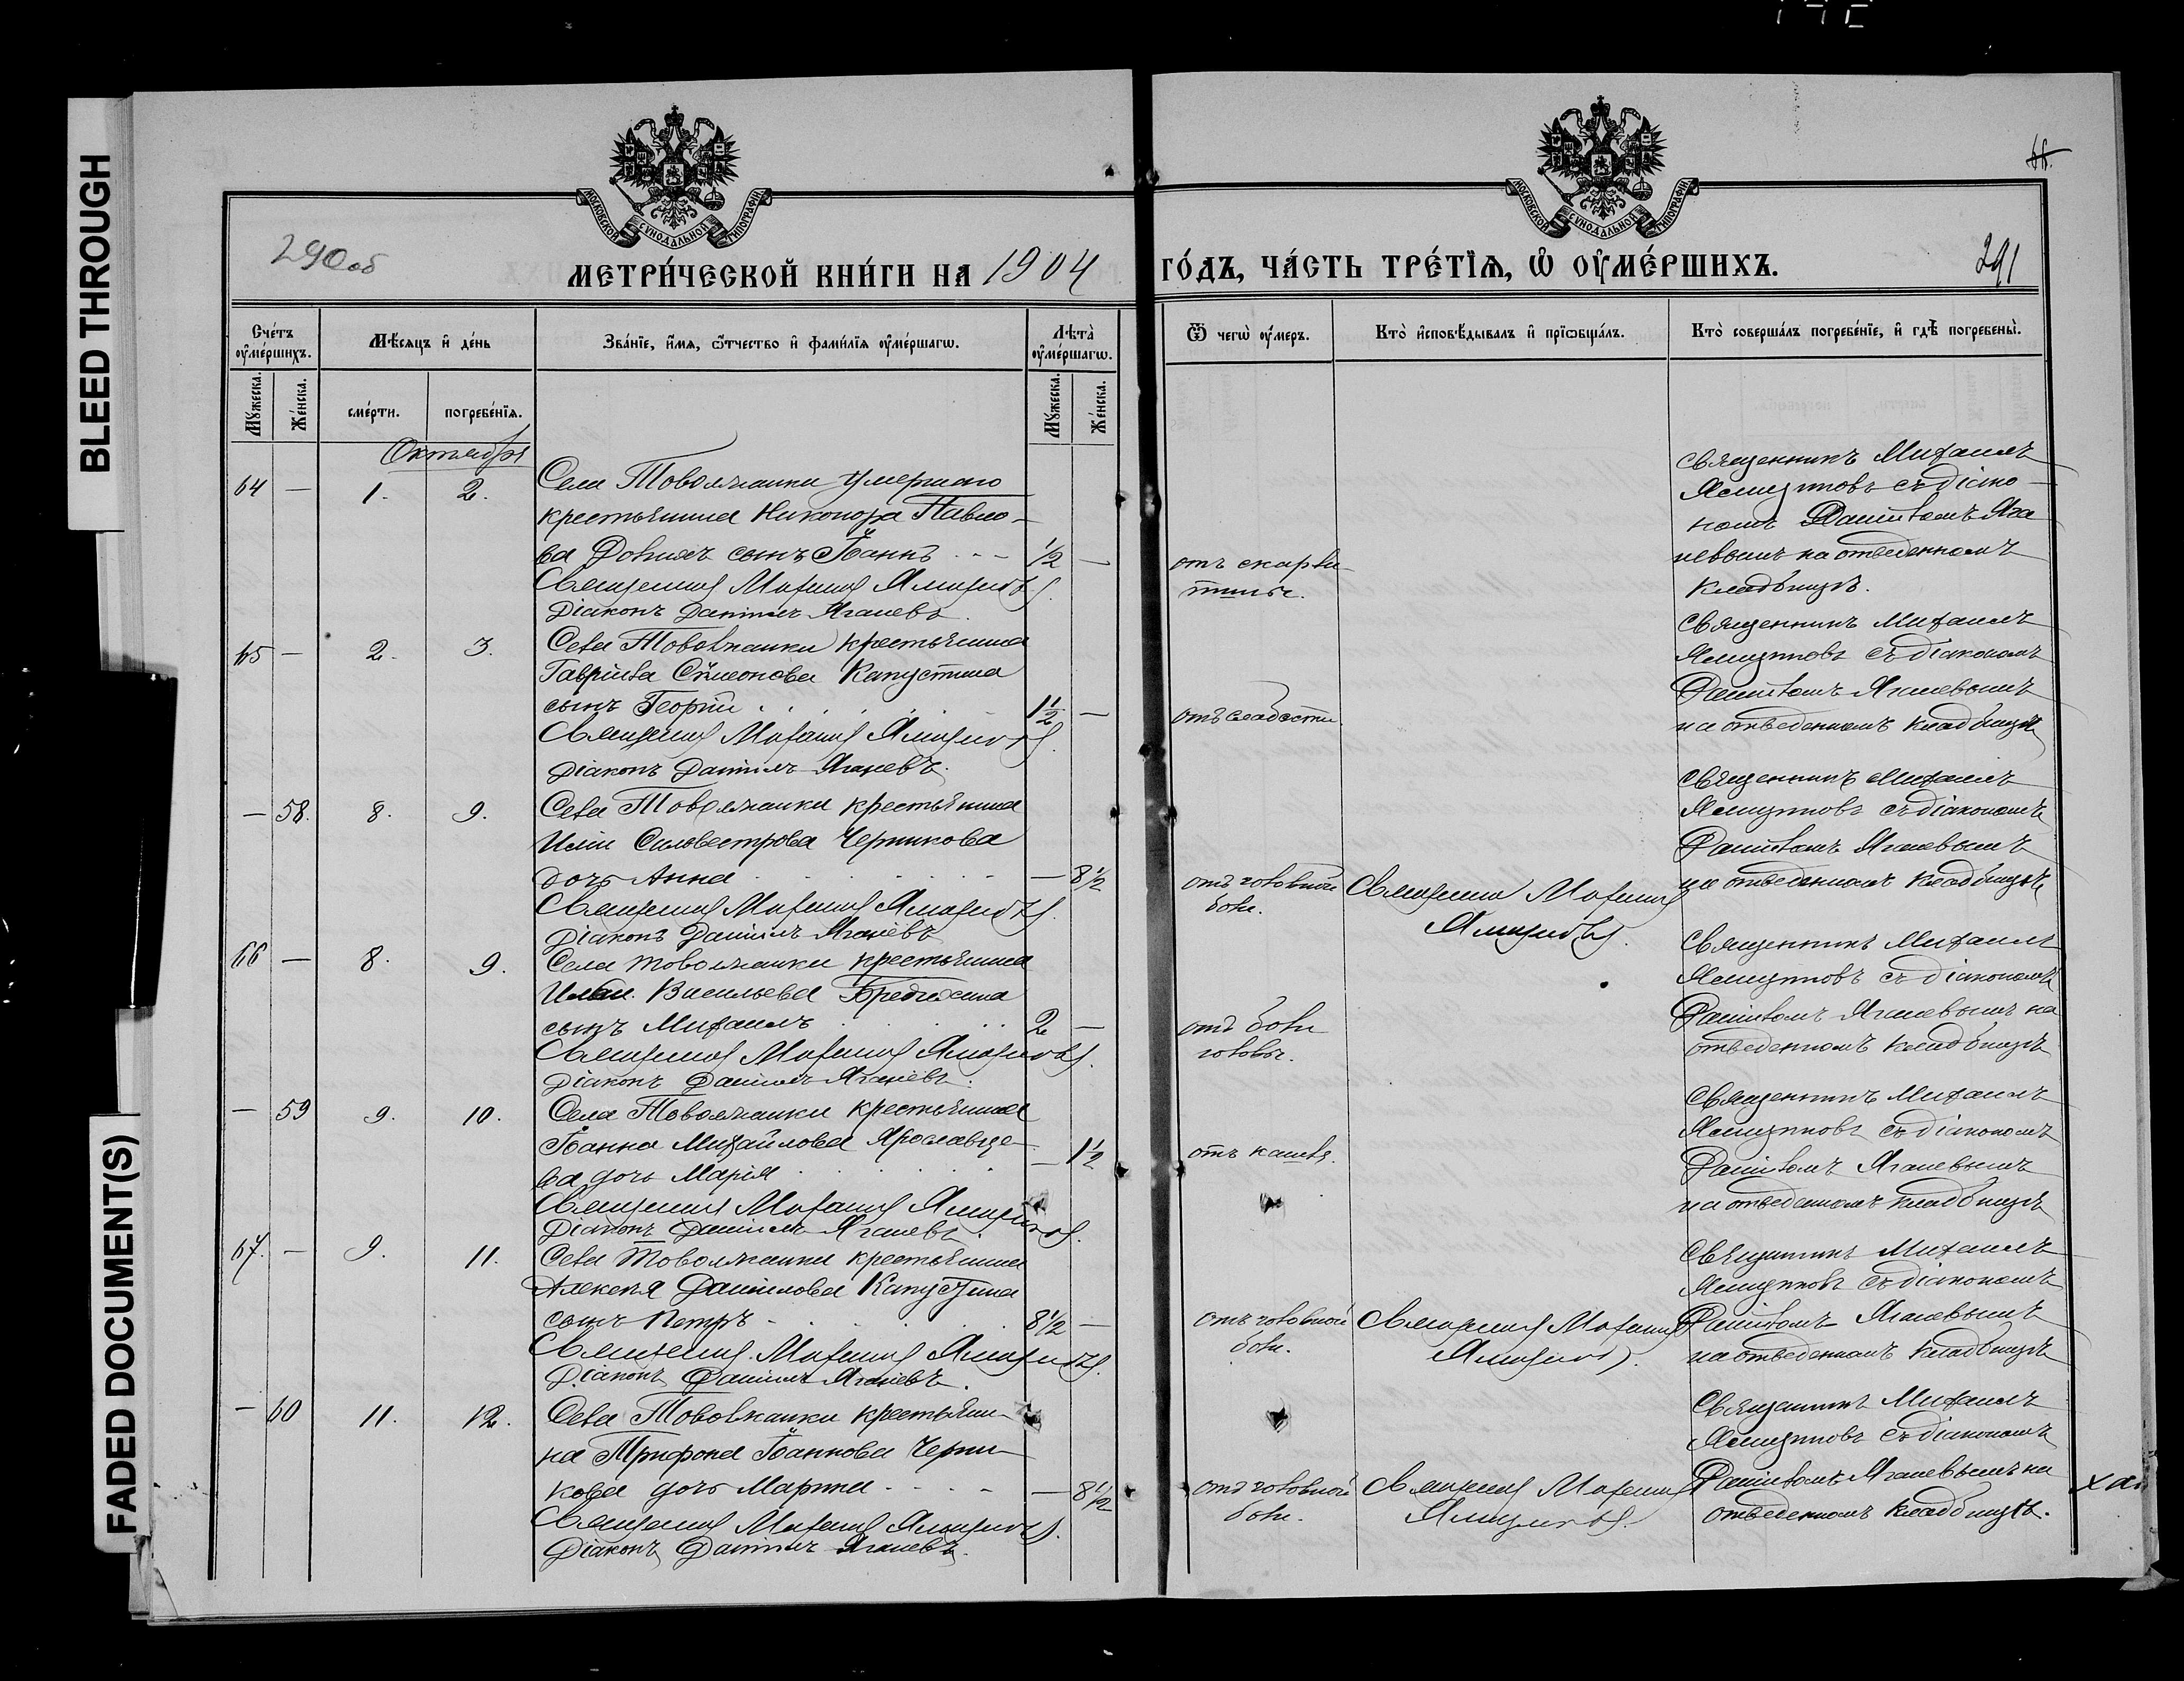 BLEED THROUGH
FADED DOCUMENT(S)
МОСКОВСКОЙ СѴНОДАЛЬНОЙ ТИПОГРАФІИ
МОСКОВСКОЙ СѴНОДАЛЬНОЙ ТИПОГРАФІИ
66.
290об
МЕТРИ́ЧЕСКОЙ КНИ́ГИ НА 1904 ГО́ДЪ, ЧА́СТЬ ТРЕ́ТЇѦ, Ѡ҆ ОУ҆МЕ́РШИХЪ.
291
Сче́тъ оу҆ме́ршихъ.
Мѣ́сѧцъ и҆ де́нь
Зва́нїе, и҆́мѧ, ѻ҆́тчество и҆ фами́лїѧ оу҆ме́ршагѡ.
Лѣ́та оу҆ме́ршагѡ.
Ѿ чегѡ̀ оу҆́меръ.
Кто̀ и҆сповѣ́дывалъ и҆ прїѡбща́лъ.
Кто̀ соверша́лъ погребе́нїе, и҆ гдѣ̀ погребены̀.
Мꙋ́жеска.
Же́нска.
сме́рти.
погребе́нїѧ.
Мꙋ́жеска.
Же́нска.
Октября
64 — 1. 2.
Села Товолжанки умершаго
крестьянина Никонора Павло-
ва сынъ Іоаннъ 1/2 —
Священникъ Михаилъ
Діаконъ Даніилъ Яганевъ.
отъ скарла
тины.
Священникъ Михаилъ
съ діако-
номъ Даніиломъ Яга
невымъ на отведенномъ
кладбищѣ.
65 — 2. 3.
Села Товолжанки крестьянина
Гавріила Сѵмеонова Капустина
сынъ Георгій 1 1/2 —
Священникъ Михаилъ
Діаконъ Даніилъ Яганевъ.
отъ слабости
Священникъ Михаилъ
съ діакономъ
Даніиломъ Яганевымъ
на отведенномъ кладбищѣ
— 58. 8. 9.
Села Товолжанки крестьянина
Иліи Сильвестрова Черникова
дочь Анна — 8 1/2
Священникъ Михаилъ
Діаконъ Даніилъ Яганевъ
отъ головной
боли.
Священникъ Михаилъ
Священникъ Михаилъ
съ діакономъ
Даніиломъ Яганевымъ
на отведенномъ кладбищѣ
66 — 8. 9.
Села Товолжанки крестьянина
Васильева Бредихина
сынъ Михаилъ 2 —
Священникъ Михаилъ
Діаконъ Даніилъ Яганевъ.
отъ боли
головы.
Священникъ Михаилъ
съ діакономъ
Даніиломъ Яганевымъ на
отведенномъ кладбищѣ
— 59 9. 10.
Села Товолжанки крестьянина
Іоанна Михайлова Ярославце-
ва дочь Марія — 1 1/2
Священникъ Михаилъ
Діаконъ Даніилъ Яганевъ.
отъ кашля.
Священникъ Михаилъ
съ діакономъ
Даніиломъ Яганевымъ
на отведенномъ кладбищѣ
67. — 9. 11.
Села Товолжанки крестьянина
Алексія Даніилова Капустина
сынъ Петръ 8 1/2 —
Священникъ Михаилъ
Діаконъ Даніилъ Яганевъ.
отъ головной
боли.
Священникъ Михаилъ
Священникъ Михаилъ
съ діакономъ
Даніиломъ Яганевымъ
на отведенномъ кладбищѣ
— 60 11. 12.
Села Товолжанки крестьяни-
на Трифона Іоаннова Черни-
кова дочь Марина — 8 1/2
Священникъ Михаилъ
Діаконъ Даніилъ Яганевъ.
отъ головной
боли.
Священникъ Михаилъ
Священникъ Михаилъ
съ діакономъ
Даніиломъ Яганевымъ на
отведенномъ кладбищѣ.